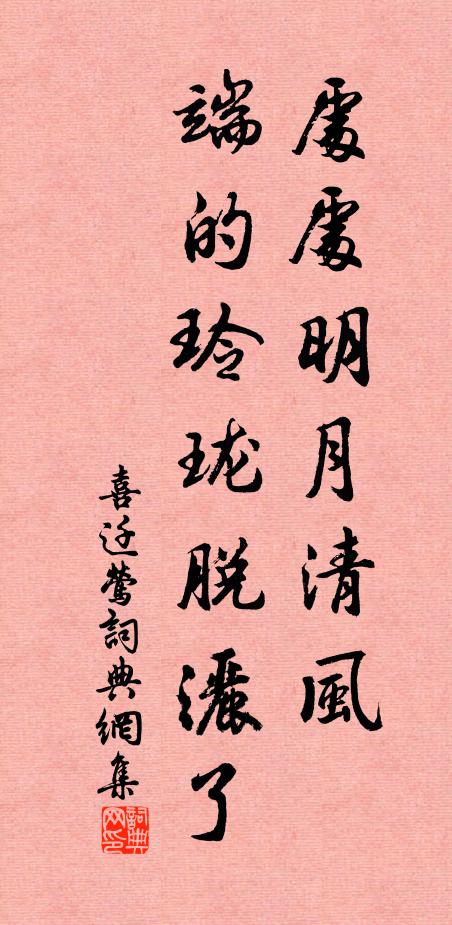 處處明月清風
端的玲珑脫灑了
喜迁鶯詞典網集
詞典网印